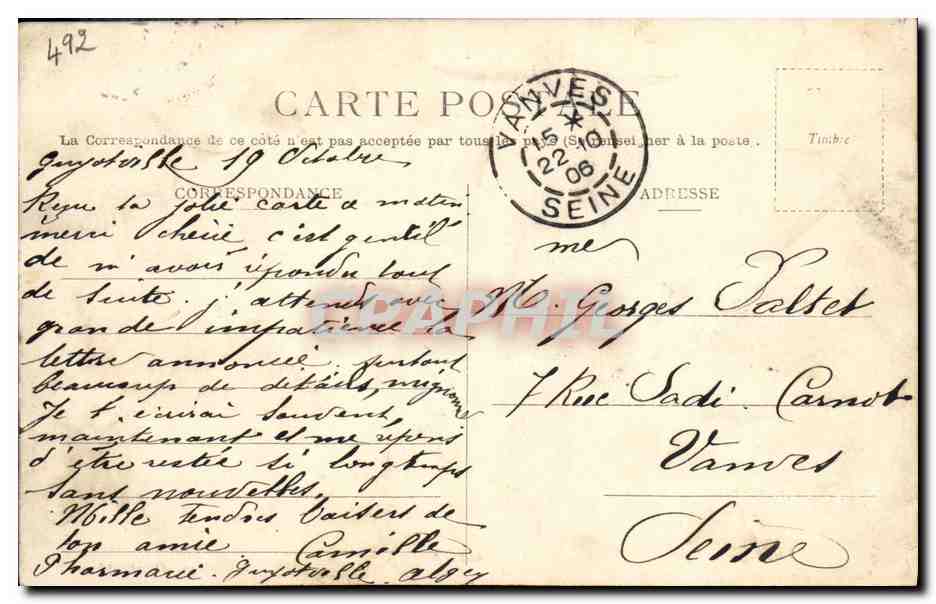 492
CARTE POSTALE
La Correspondance de ce côté n'est pas acceptée par tous les pays (Se renseigner à la poste.
Timbre
VANVES
5 *
22 - 10
06
SEINE
CORRESPONDANCE
ADRESSE
Guyotville 19 Octobre
Reçu ta jolie carte ce matin
merci chérie c'est gentil
de m'avoir répondu tout
de suite. j'attends avec
grande impatience la
lettre annoncée. surtout
beaucoup de détails, mignonne
Je t'écrirai souvent,
maintenant et me repens
d'être restée si longtemps
sans nouvelles.
Mille tendres baisers de
ton amie Camille
Pharmacie. Guyotville Alger
me
M. Georges Paltet
7 Rue Sadi Carnot
Vanves
Seine
CPAPHIL